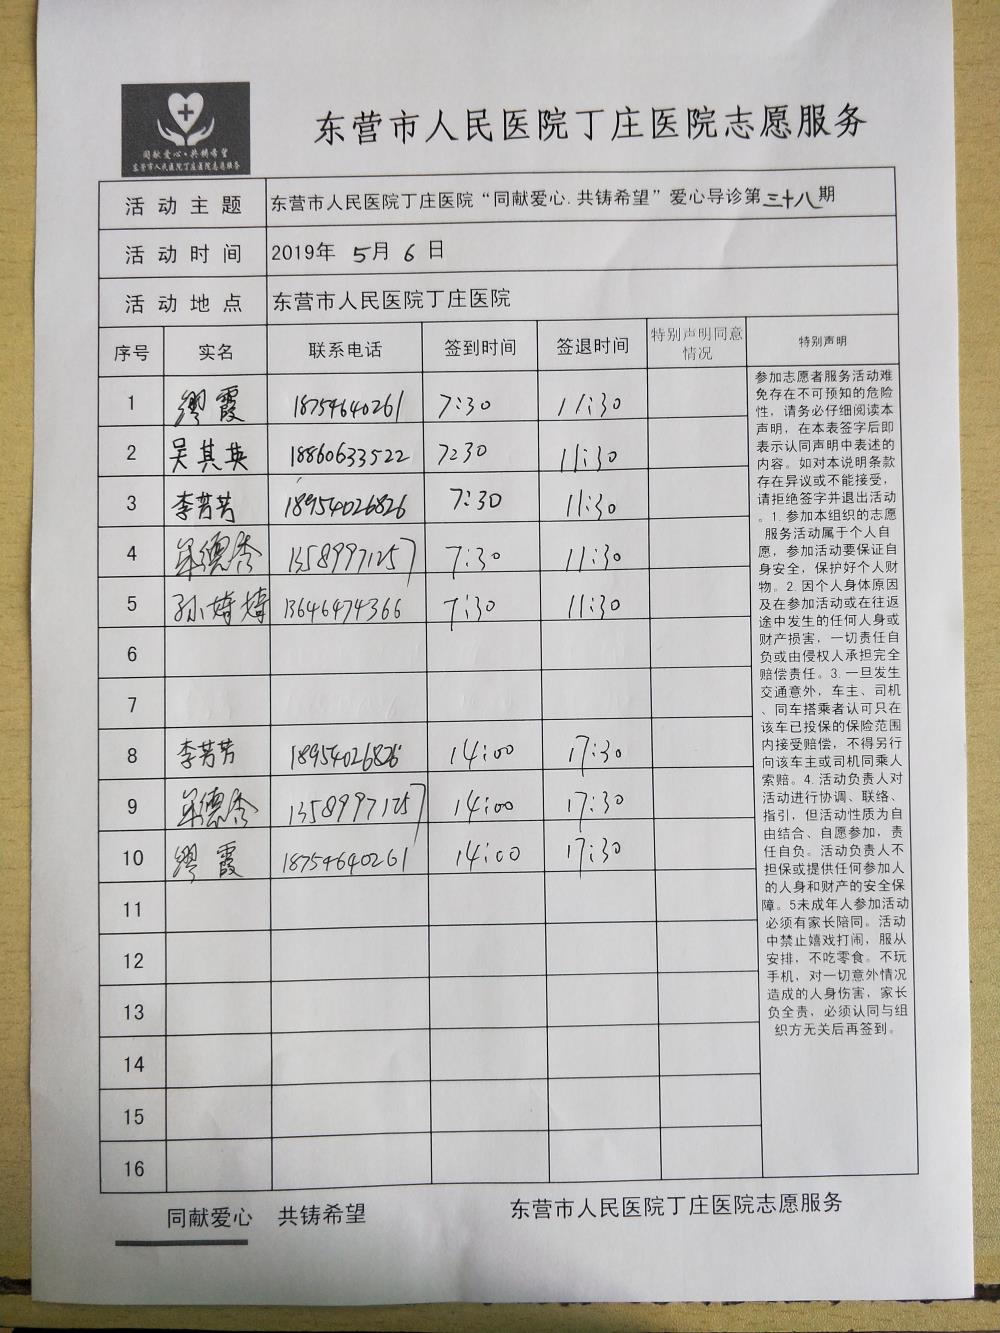 同献爱心·共铸希望
东营市人民医院丁庄医院志愿服务
东营市人民医院丁庄医院志愿服务
活动主题 东营市人民医院丁庄医院“同献爱心.共铸希望”爱心导诊第三十八期
活动时间 2019年 5月 6 日
活动地点 东营市人民医院丁庄医院
序号 实名 联系电话 签到时间 签退时间 特别声明同意 特别声明
情况
1 缪霞 18754640261 7:30 11:30
2 吴其英 18860633522 7:30 11:30
3 李芳芳 18954026826 7:30 11:30
4 德秀 13589971257 7:30 11:30
5 孙婧婧 13646474366 7:30 11:30
6
7
8 李芳芳 18954026826 14:00 17:30
9 德秀 13589971257 14:00 17:30
10 缪霞 18754640261 14:00 17:30
11
12
13
14
15
16
参加志愿者服务活动难
免存在不可预知的危险
性，请务必仔细阅读本
声明，在本表签字后即
表示认同声明中表述的
内容。如对本说明条款
存在异议或不能接受，
请拒绝签字并退出活动
。1.参加本组织的志愿
服务活动属于个人自
愿，参加活动要保证自
身安全，保护好个人财
物。2.因个人身体原因
及在参加活动或在往返
途中发生的任何人身或
财产损害，一切责任自
负或由侵权人承担完全
赔偿责任。3.一旦发生
交通意外，车主、司机
、同车搭乘者认可只在
该车已投保的保险范围
内接受赔偿，不得另行
向该车主或司机同乘人
索赔。4.活动负责人对
活动进行协调、联络、
指引，但活动性质为自
由结合、自愿参加，责
任自负。活动负责人不
担保或提供任何参加人
的人身和财产的安全保
障。5未成年人参加活动
必须有家长陪同。活动
中禁止嬉戏打闹，服从
安排，不吃零食。不玩
手机，对一切意外情况
造成的人身伤害，家长
负全责，必须认同与组
织方无关后再签到。
同献爱心 共铸希望
东营市人民医院丁庄医院志愿服务